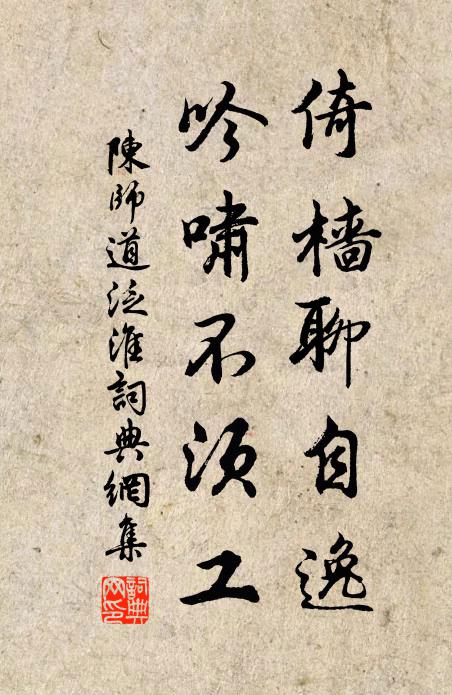 倚檣聊自逸
吟嘯不須工
陳師道泛淮詞典網集
詞典網印